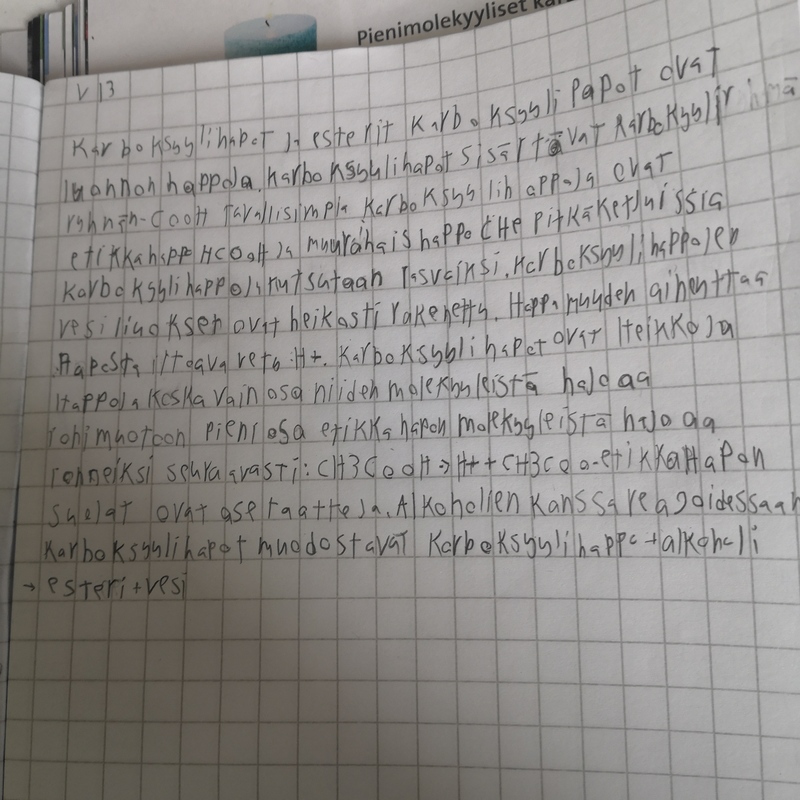 Pienimolekyyliset
V 13
Karboksyylihapot ja esterit Karboksyylihapot ovat
luonnon happoja. Karboksyylihapot sisältävät karboksyyli
ryhmän-COOH Tavallisimpia Karboksyylihappoja ovat
etikkahappo HCOOH ja muurahaishappo CHe Pitkäketjuissia
Karboksyylihappoja kutsutaan rasvoiksi. Karboksyylihappojen
vesiliuoksen ovat heikosti rakenettu. Happamuuden aiheuttaa
Haposta iltoava retu H+. Karboksyylihapot ovat Heikkoja
Happoja Koska vain osa niiden molekyyleistä hajoaa
ionimuotoon Pieni osa etikkahapon molekyyleistä hajoaa
ionneiksi seuraavasti: CH3COOH → H+ + CH3COO- etikkaHapon
suolat ovat asetaatteja. Alkoholien kanssa reagoidessaan
Karboksyylihapot muodostavat Karboksyylihappo + alkoholi
→ esteri + vesi